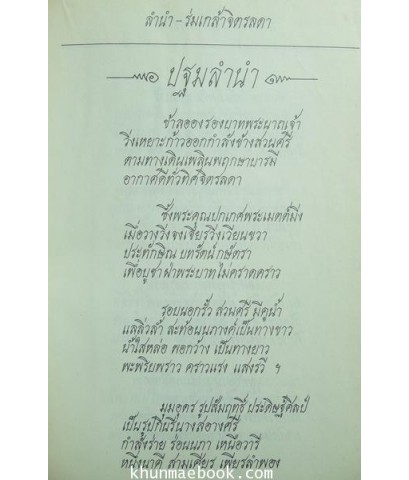 ลำนำ - ร่มเกล้าจิตรลดา
ปฐมลำนำ
ข้าลอองรองบาทพระนาถเจ้า
วิ่งเหยาะก้าวออกกำลังข้างสวนศรี
ตามทางเดินเพลินพฤกษาบารมี
อากาศดีทั่วทิศจิตรลดา
ซึ่งพระคุณปกเกศพระเมตต์มิ่ง
เมื่อวางวิ่งจงเชียรวิ่งเวียนขวา
ประทักษิณ บทรัตน์กษัตรา
เพื่อบูชาฝ่าพระบาทไม่คราดคราว
รอบนอกรั้ว สวนศรี มีคูน้ำ
แลลิ่วล้ำ สะท้อนนภางค์เป็นทางขาว
น้ำใสหล่อ คอกว้าง เป็นทางยาว
พะพริบพราว คราวแรง แสงรวี ฯ
มุมอุดร รูปสัมฤทธิ์ ประดิษฐ์ศิลป์
เป็นรูปกินรีนางสอางศรี
กำลังร่าย ร่อนนภา เหนือวารี
หนึ่งนาคี สามเศียร เพียรลำพอง
khunmaebook.com